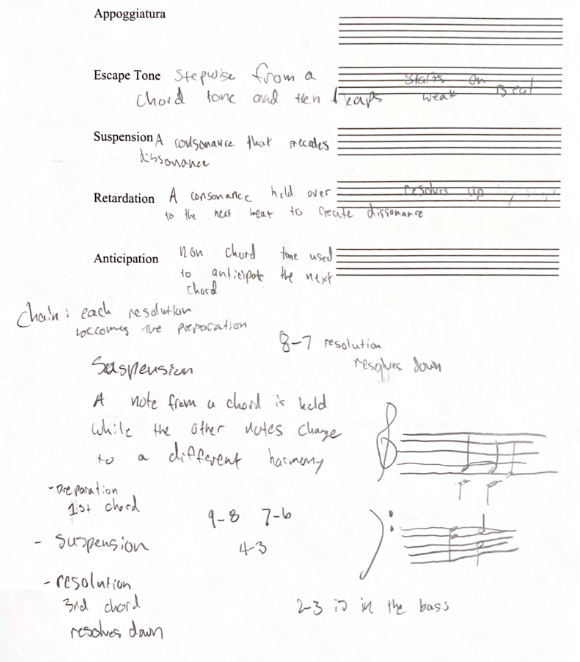 Appoggiatura
Escape Tone Stepwise from a
chord tone and then leaps
starts on
weak beat
Suspension A consonance that creates
dissonance
Retardation A consonance held over
to the next beat to create dissonance
resolves up
Anticipation non chord tone used
to anticipate the next
chord
Chain: each resolution
becomes the preparation
8-7 resolution
resolves down
Suspension
A note from a chord is held
while the other notes change
to a different harmony
- preparation
1st chord
9-8 7-6
4-3
- suspension
- resolution
3rd chord
resolves down
2-3 is in the bass